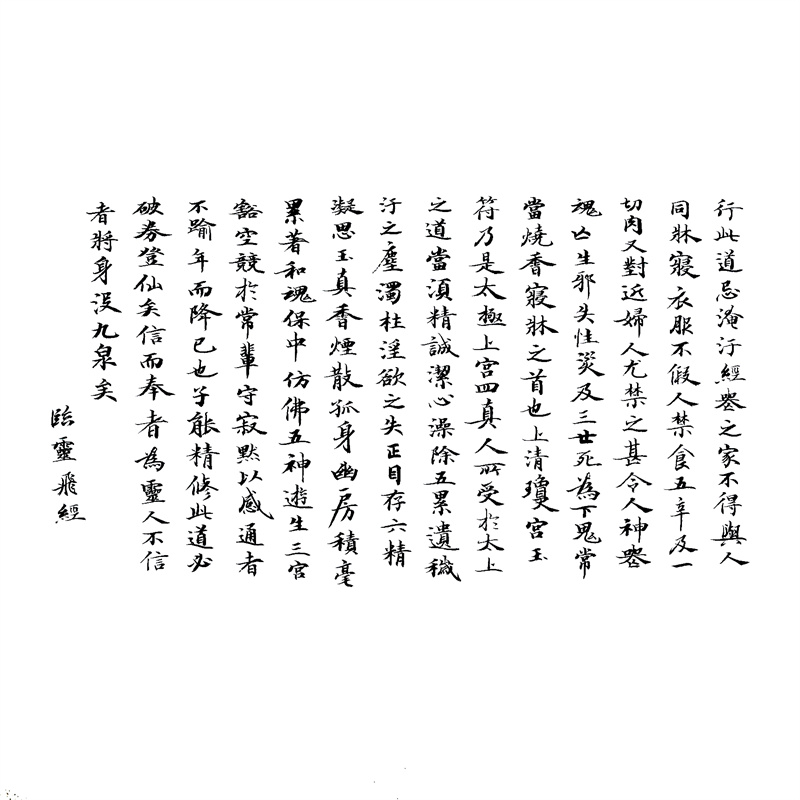 行此道忌淹汙經喪之家不得與人
同牀寢衣服不假人禁食五辛及一
切肉又對近婦人尤禁之甚令人神喪
魂亡生邪失性災及三世死為下鬼常
當燒香寢牀之首也上清瓊宮玉
符乃是太極上宮四真人所受於太上
之道當須精誠潔心澡除五累遺穢
汙之塵濁杜淫欲之失正目存六精
凝思玉真香煙散孤身幽房積毫
累著和魂保中仿佛五神遊生三宮
豁空競於常輩守寂默以感通者
不踰年而降已也子能精修此道必
破券登仙矣信而奉者為靈人不信
者將身沒九泉矣
臨靈飛經